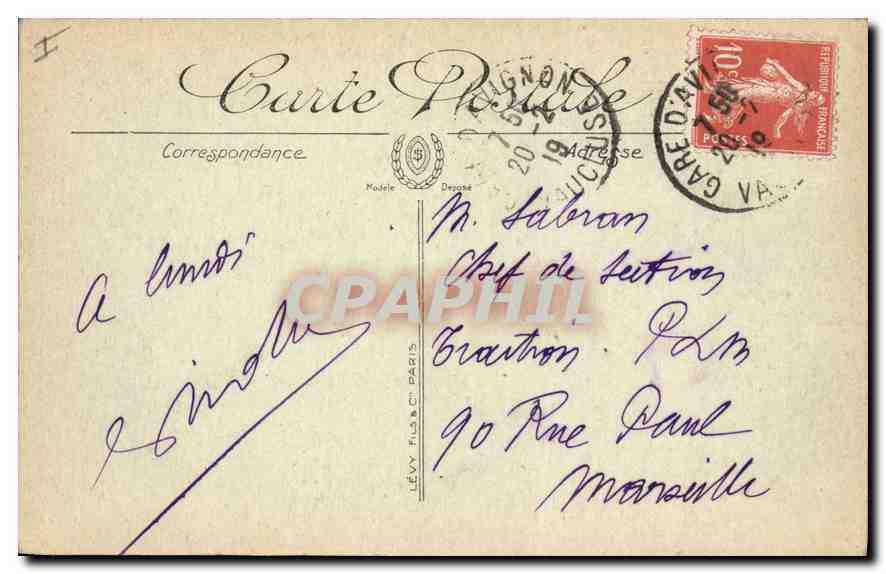 I
Carte Postale
Correspondance
Adresse
Modèle Déposé
D'AVIGNON
7 5
20 - 2
19
VAUCLUSE
10c
REPUBLIQUE FRANÇAISE
POSTES
GARE D'AVI
7 50
20 - 2
19
VA
A lundi
M. Sabran
Chef de Section
Traction PLM
90 Rue Paul
Marseille
LÉVY FILS & Cie PARIS
CPAPHIL